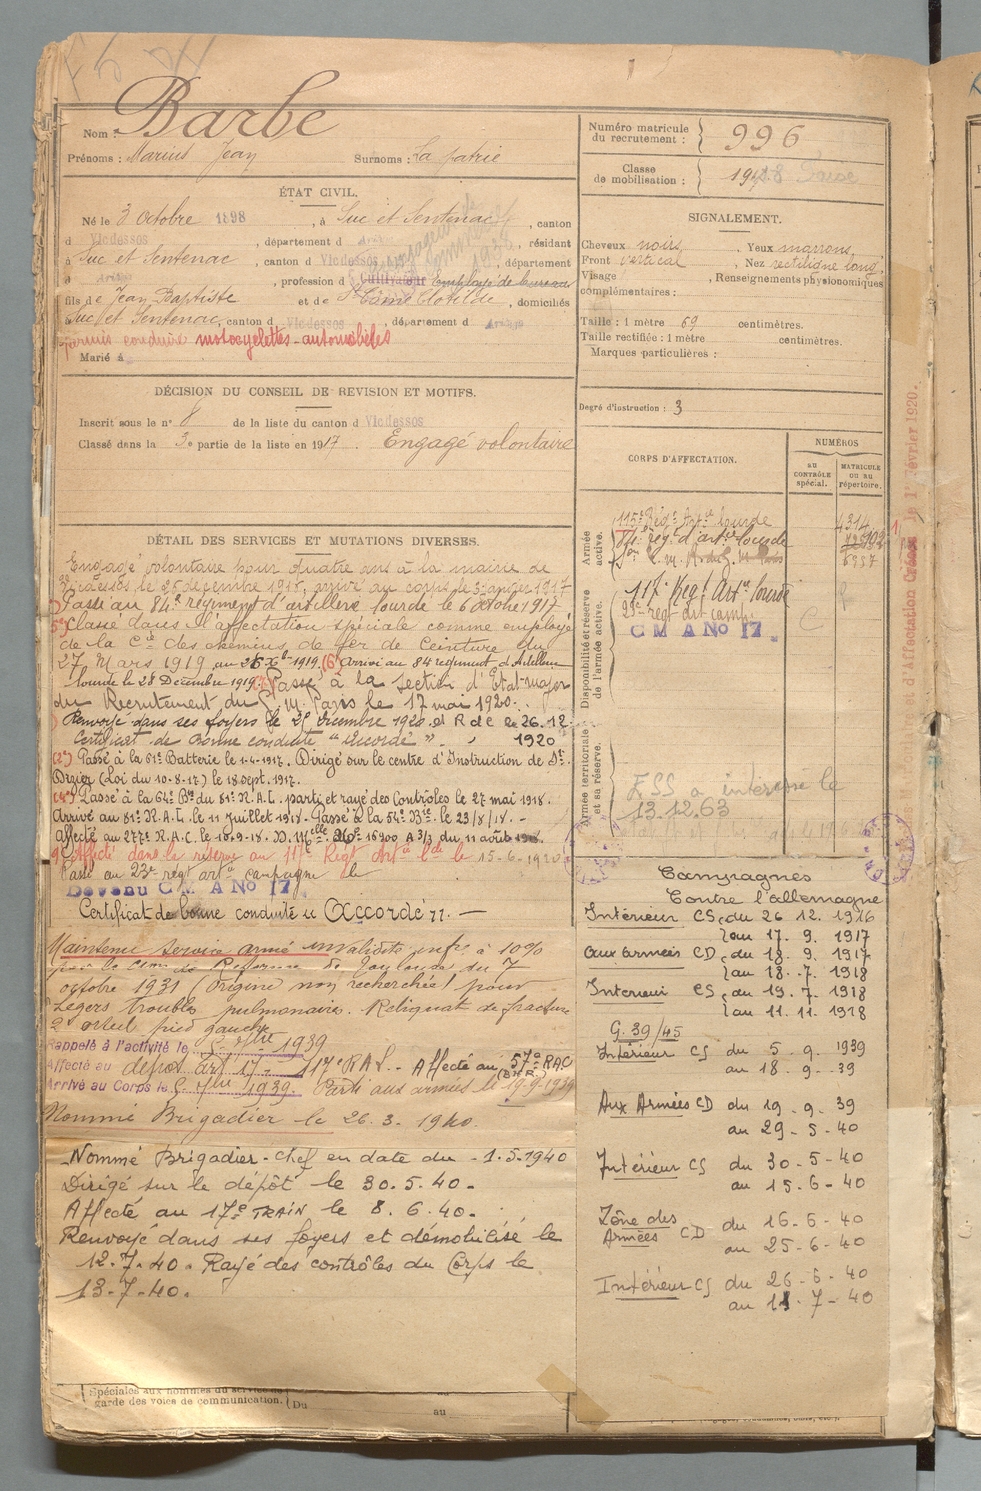 Nom : Barbe
Prénoms : Marius Jean Surnoms : La patrie
ÉTAT CIVIL.
Né le 3 Octobre 1898, à Suc et Sentenac, canton
d Vicdessos, département d Ariège, résidant
à Suc et Sentenac, canton d Vicdessos, département
d Ariège, profession d Cultivateur Employé de bureau
fils de Jean Baptiste et de Clotilde, domiciliés
Suc et Sentenac, canton d Vicdessos, département d Ariège
permis conduire motocyclettes - automobiles
Marié à
DÉCISION DU CONSEIL DE REVISION ET MOTIFS.
Inscrit sous le n° 8 de la liste du canton d Vicdessos
Classé dans la 3e partie de la liste en 1917. Engagé volontaire
DÉTAIL DES SERVICES ET MUTATIONS DIVERSES.
Engagé volontaire pour quatre ans à la mairie de
le 26 décembre 1916, arrivé au corps le 3 janvier 1917
Passé au 84e régiment d'artillerie lourde le 6 octobre 1917
5°) Classé dans l'affectation spéciale comme employé
de la Cie des chemins de fer de Ceinture du
27 Mars 1919 au 1919. (6°) Arrivé au 84 régiment d'Artillerie
lourde le 28 Décembre 1919. Passé à la Section d'Etat-major
du Recrutement du G.M. Paris le 17 mai 1920.
Renvoyé dans ses foyers le 25 Décembre 1920 et R d C le 26.12.
Certificat de Bonne conduite "Accordé". 1920
(2°) Passé à la 61e Batterie le 1-4-1917. Dirigé sur le centre d'Instruction de St.
Dizier (Loi du 10-8-17) le 18 sept. 1917.
(4°) Passé à la 64e Bie du 81e R.A.L. parti et rayé des Contrôles le 27 mai 1918.
Arrivé au 81e R.A.L. le 11 Juillet 1918. Passé à la 54e Bie. le 23/8/18. -
Affecté au 277e R.A.C. le 10-9-18. D. Melle No 16900 A 3/3 du 11 août
9°) Affecté dans la réserve au 117e Régt Artie Lde le 15-6-1920
Passé au 23e régt arte campagne le
Devenu C M A No 17
Certificat de bonne conduite " Accordé ". —
Maintenu service armé invalidité infre à 10%
par la Reforme de Toulouse du 7
octobre 1931 (Origine non recherchée) pour
Légers troubles pulmonaires. Reliquat de fracture
2e orteil pied gauche
Rappelé à l'activité le 5 7bre 1939
Affecté au dépôt art 17 - 117e RAL. - Affecté au 57e RAC
Arrivé au Corps le 5 7bre 1939. Parti aux armées le 19.9.1939
Nommé Brigadier le 26.3.1940.
Nommé Brigadier-Chef en date du -1.5.1940
Dirigé sur le dépôt le 30.5.40.
Affecté au 17e TRAIN le 8.6.40.
Renvoyé dans ses foyers et démobilisé le
12.7.40. Rayé des contrôles du Corps le
13-7-40.
Spéciales aux hommes du service de
garde des voies de communication. Du
au
Numéro matricule
du recrutement : 996
Classe
de mobilisation : 19
SIGNALEMENT.
Cheveux noirs, Yeux marrons,
Front vertical, Nez rectiligne long,
Visage, Renseignements physionomiques
complémentaires :
Taille : 1 mètre 69 centimètres.
Taille rectifiée : 1 mètre centimètres.
Marques particulières :
Degré d'instruction : 3
CORPS D'AFFECTATION.
NUMÉROS
AU CONTRÔLE spécial.
MATRICULE OU AU répertoire.
Armée active.
115e Régt Artie lourde 4314
84e regt d'artie lourde
Disponibilité et réserve de l'armée active.
117e Regt Artie Lourde
23e regt art camp.
C M A No 17 C
Armée territoriale et sa réserve.
ESS a interesse le
13.12.63
d'Affectation Créée le 1er Février 1920.
Campagnes
Contre l'allemagne
Intérieur CS du 26.12.1916
au 17.9.1917
aux armées CD du 18.9.1917
au 18.7.1918
Interieur CS du 19.7.1918
au 11.11.1918
G. 39/45
Intérieur CS du 5.9.1939
au 18.9.39
Aux Armées CD du 19.9.39
au 29-5-40
Intérieur CS du 30-5-40
au 15-6-40
Zône des
Armées CD du 16-6-40
au 25-6-40
Intérieur CS du 26-6-40
au 11-7-40